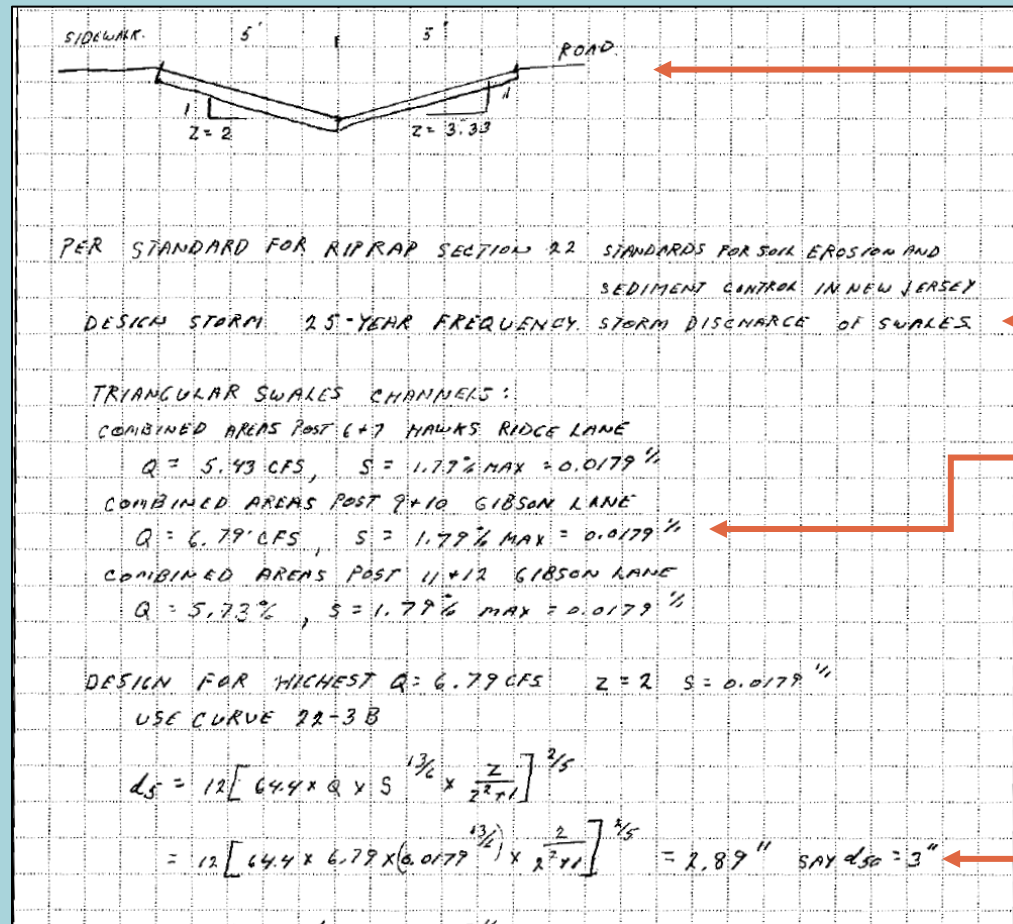 SIDEWALK. 5' 5' ROAD.
1 1
Z = 2 Z = 3.33
PER STANDARD FOR RIPRAP SECTION 22 STANDARDS FOR SOIL EROSION AND
SEDIMENT CONTROL IN NEW JERSEY
DESIGN STORM 25-YEAR FREQUENCY. STORM DISCHARGE OF SWALES.
TRIANGULAR SWALES CHANNELS:
COMBINED AREAS POST 6+7 HAWKS RIDGE LANE
Q = 5.43 CFS, S = 1.79% MAX = 0.0179 1/1
COMBINED AREAS POST 9+10 GIBSON LANE
Q = 6.79 CFS, S = 1.79% MAX = 0.0179 1/1
COMBINED AREAS POST 11+12 GIBSON LANE
Q = 5.73%, S = 1.79% MAX = 0.0179 1/1
DESIGN FOR HIGHEST Q = 6.79 CFS Z = 2 S = 0.0179 1/1
USE CURVE 22-3B
d5 = 12[64.4 x Q x S^13/6 x Z/(Z²+1)]^2/5
= 12[64.4 x 6.79 x (0.0179^13/6) x 2/(2²+1)]^2/5 = 2.89" SAY d50 = 3"